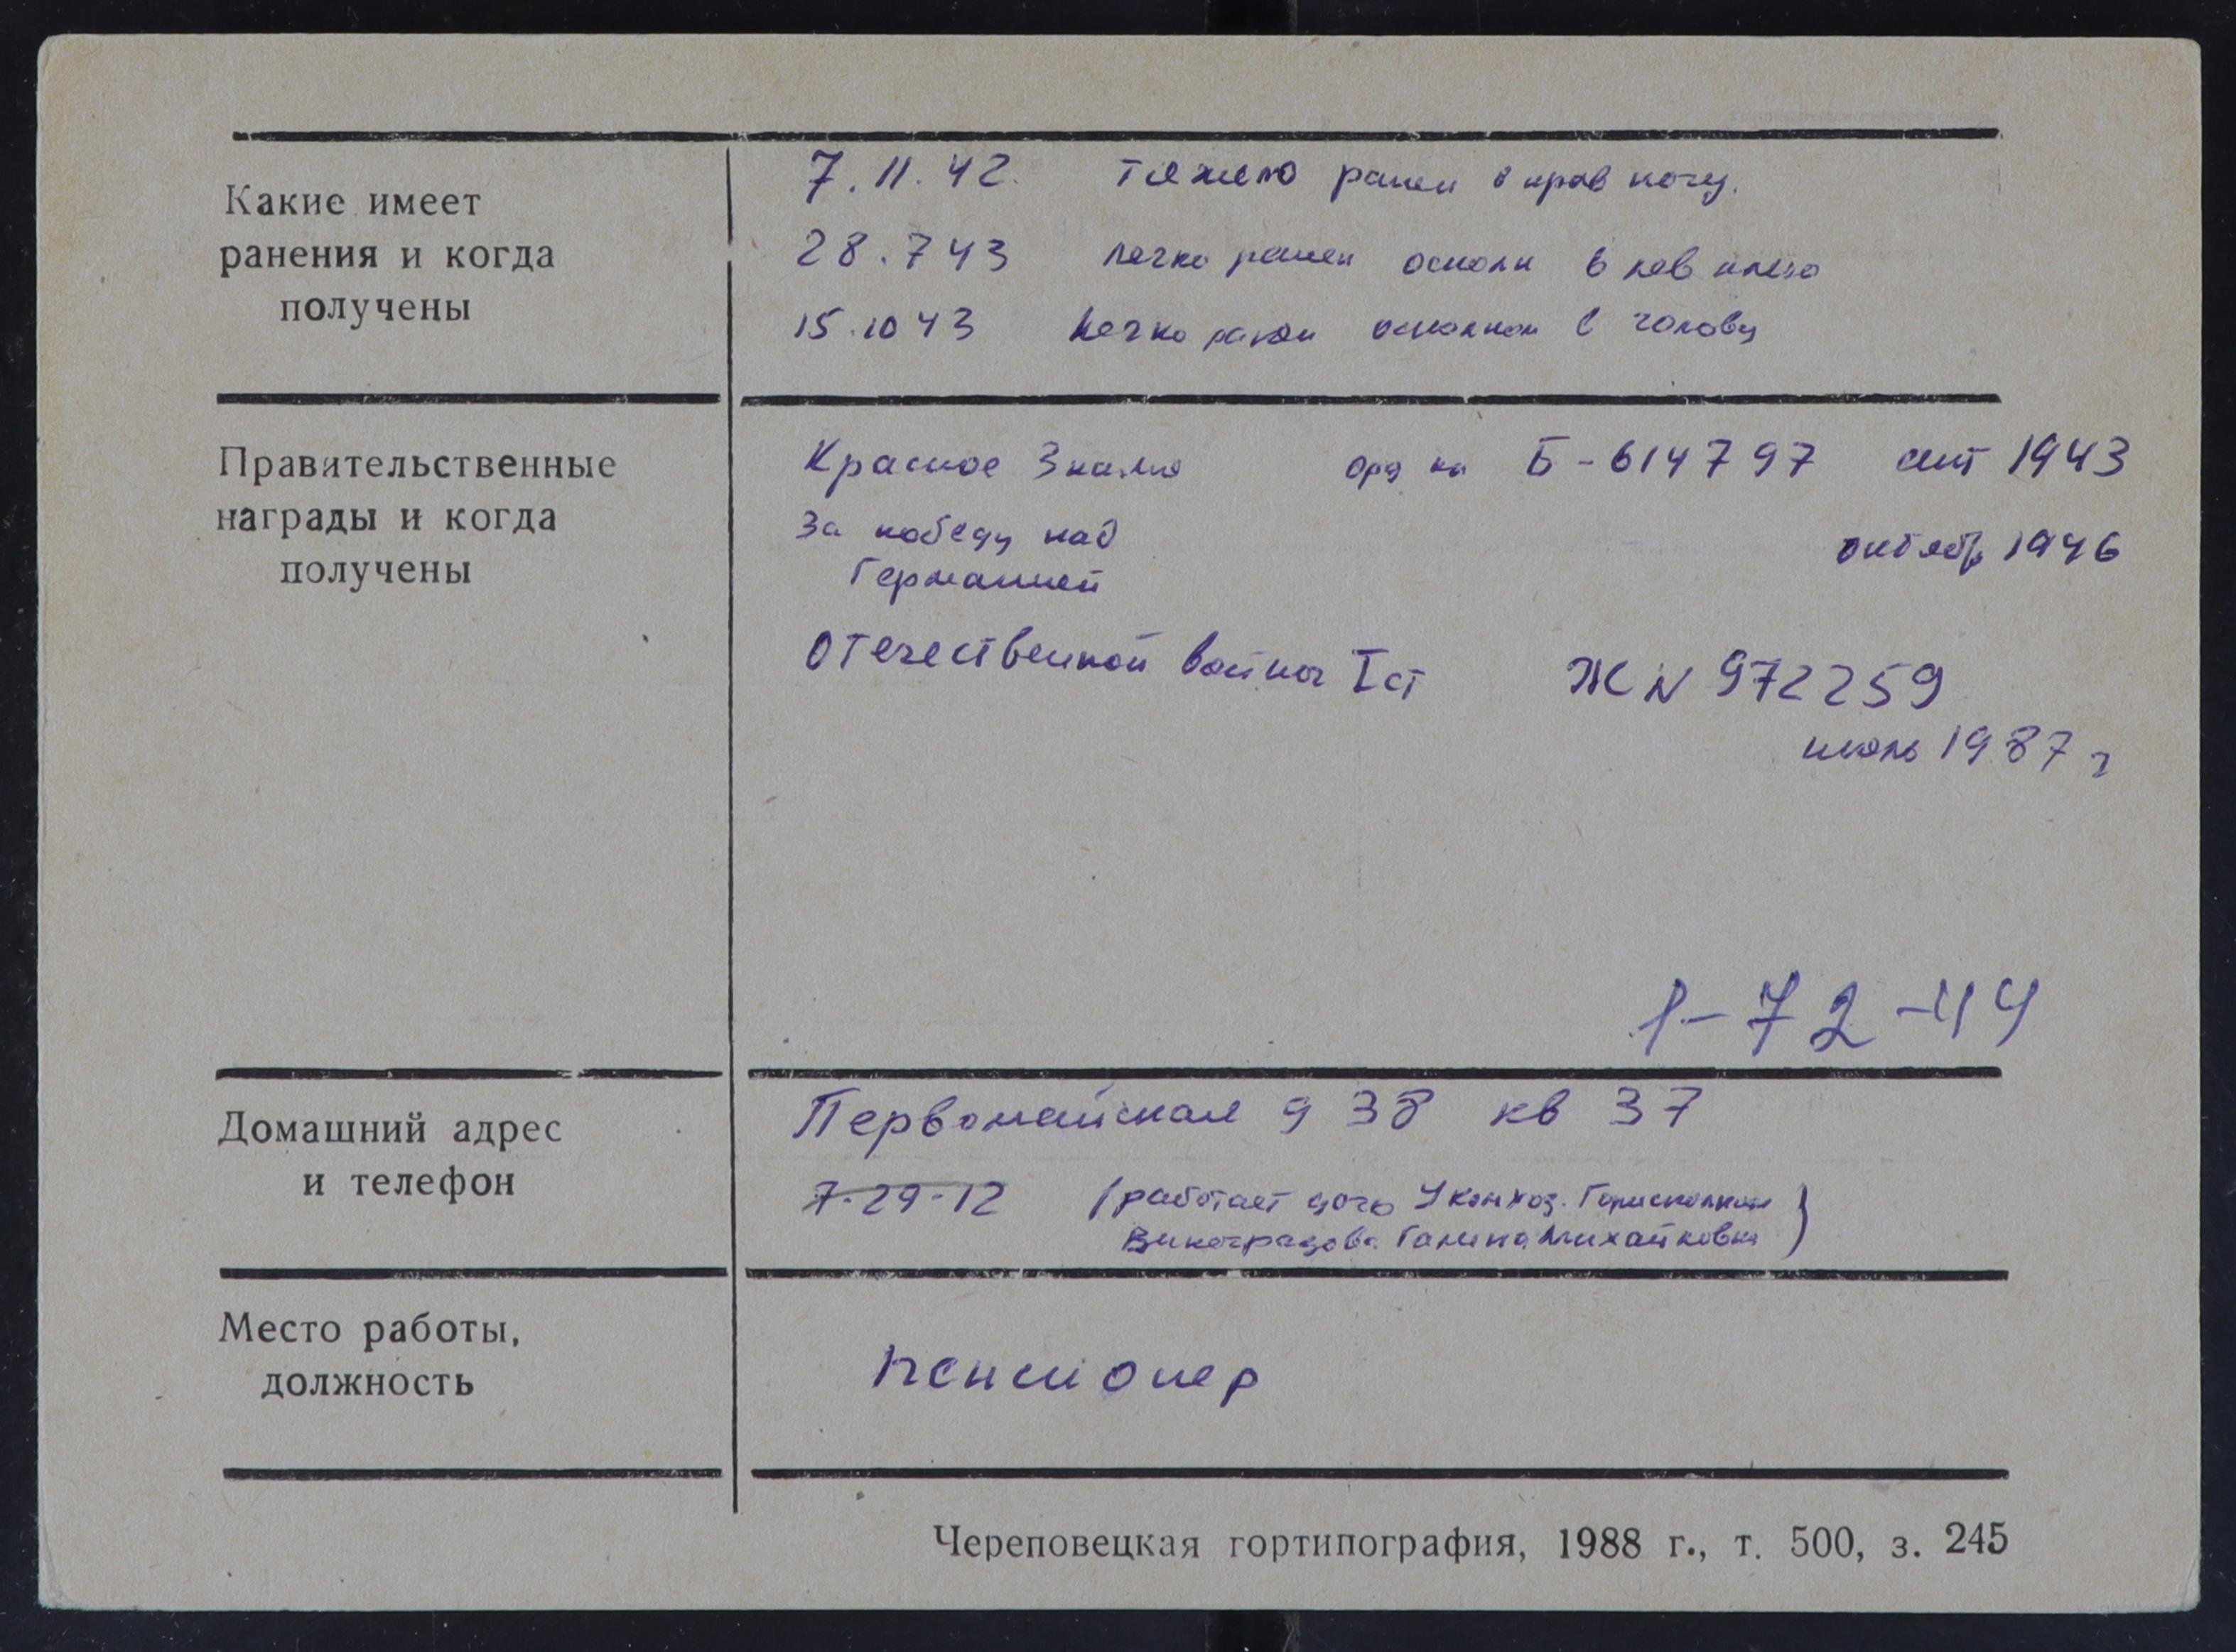 7.11.42. Тяжело ранен в прав ногу.
Какие имеет
ранения и когда
получены
28.7 43 легко ранен осколк в лев плечо
15.10 43 Легко ранен осколком в голову
Правительственные
награды и когда
получены
Красное Знамя орд кн Б-614797 сент 1943
За победу над
Германией
октябр 1946
Отечественной войны I ст Ж N 972259
июль 1987 г
1-72-44
Домашний адрес
и телефон
Первомайская д 38 кв 37
7-29-12 (работает дочь Горисполком
Виноградова Галина Михайловна)
Место работы,
должность
пенсионер
Череповецкая гортипография, 1988 г., т. 500, з. 245